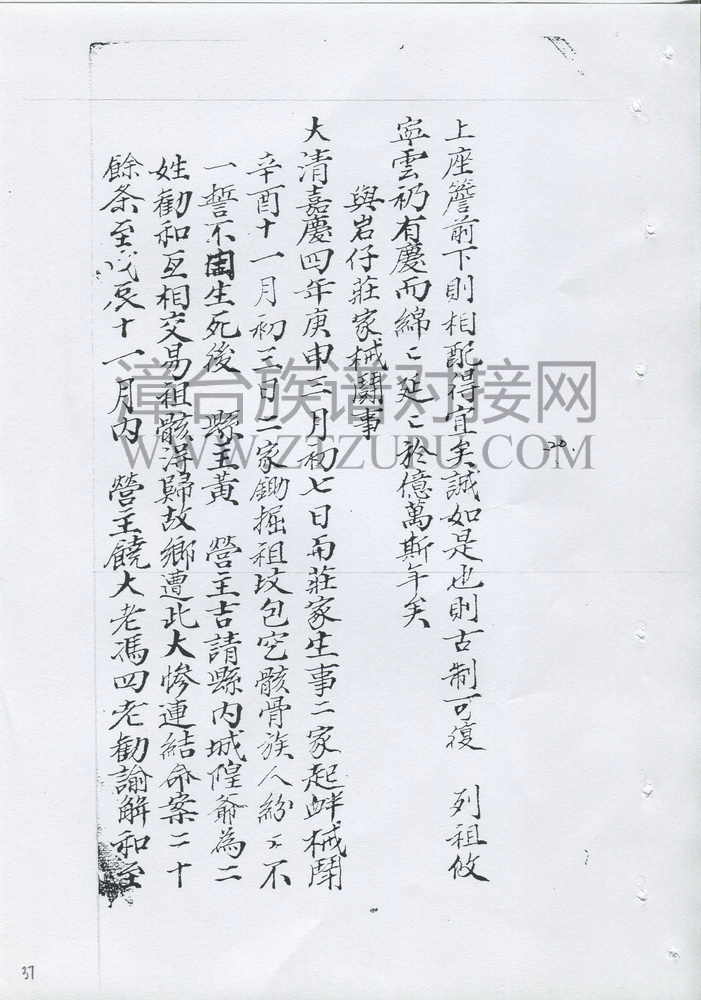 上座簷前下則相配得宜矣誠如是也則古制可復　列祖攸
寧雲礽有慶而綿〻延〻於億萬斯年矣
與岩仔莊家械鬪事
大清嘉慶四年庚申三月初七日而莊家生事二家起衅械鬪
辛酉十一月初三日二家鋤掘祖坟包空骸骨族人紛〻不
一誓不固生死後　縣主黃　營主吉請縣內城隍爺為二
姓勸和互相交易祖骸得歸故鄉遭此大慘連結命案二十
餘条至戊辰十一月內　營主饒大老馮四老勸諭解和至
20
37
漳台族谱对接网
WWW.ZTZUPU.COM